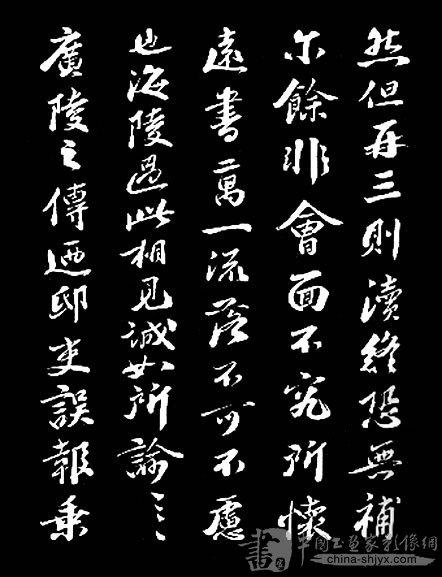 然但再三則瀆終恐無補
尔餘非會面不究所懷
遠書萬一流落不可不慮
也海陵過此相見誠如所諭〻
廣陵之傳迺邸吏誤報乗
書
中国书画家影像網
china-shjyx.com